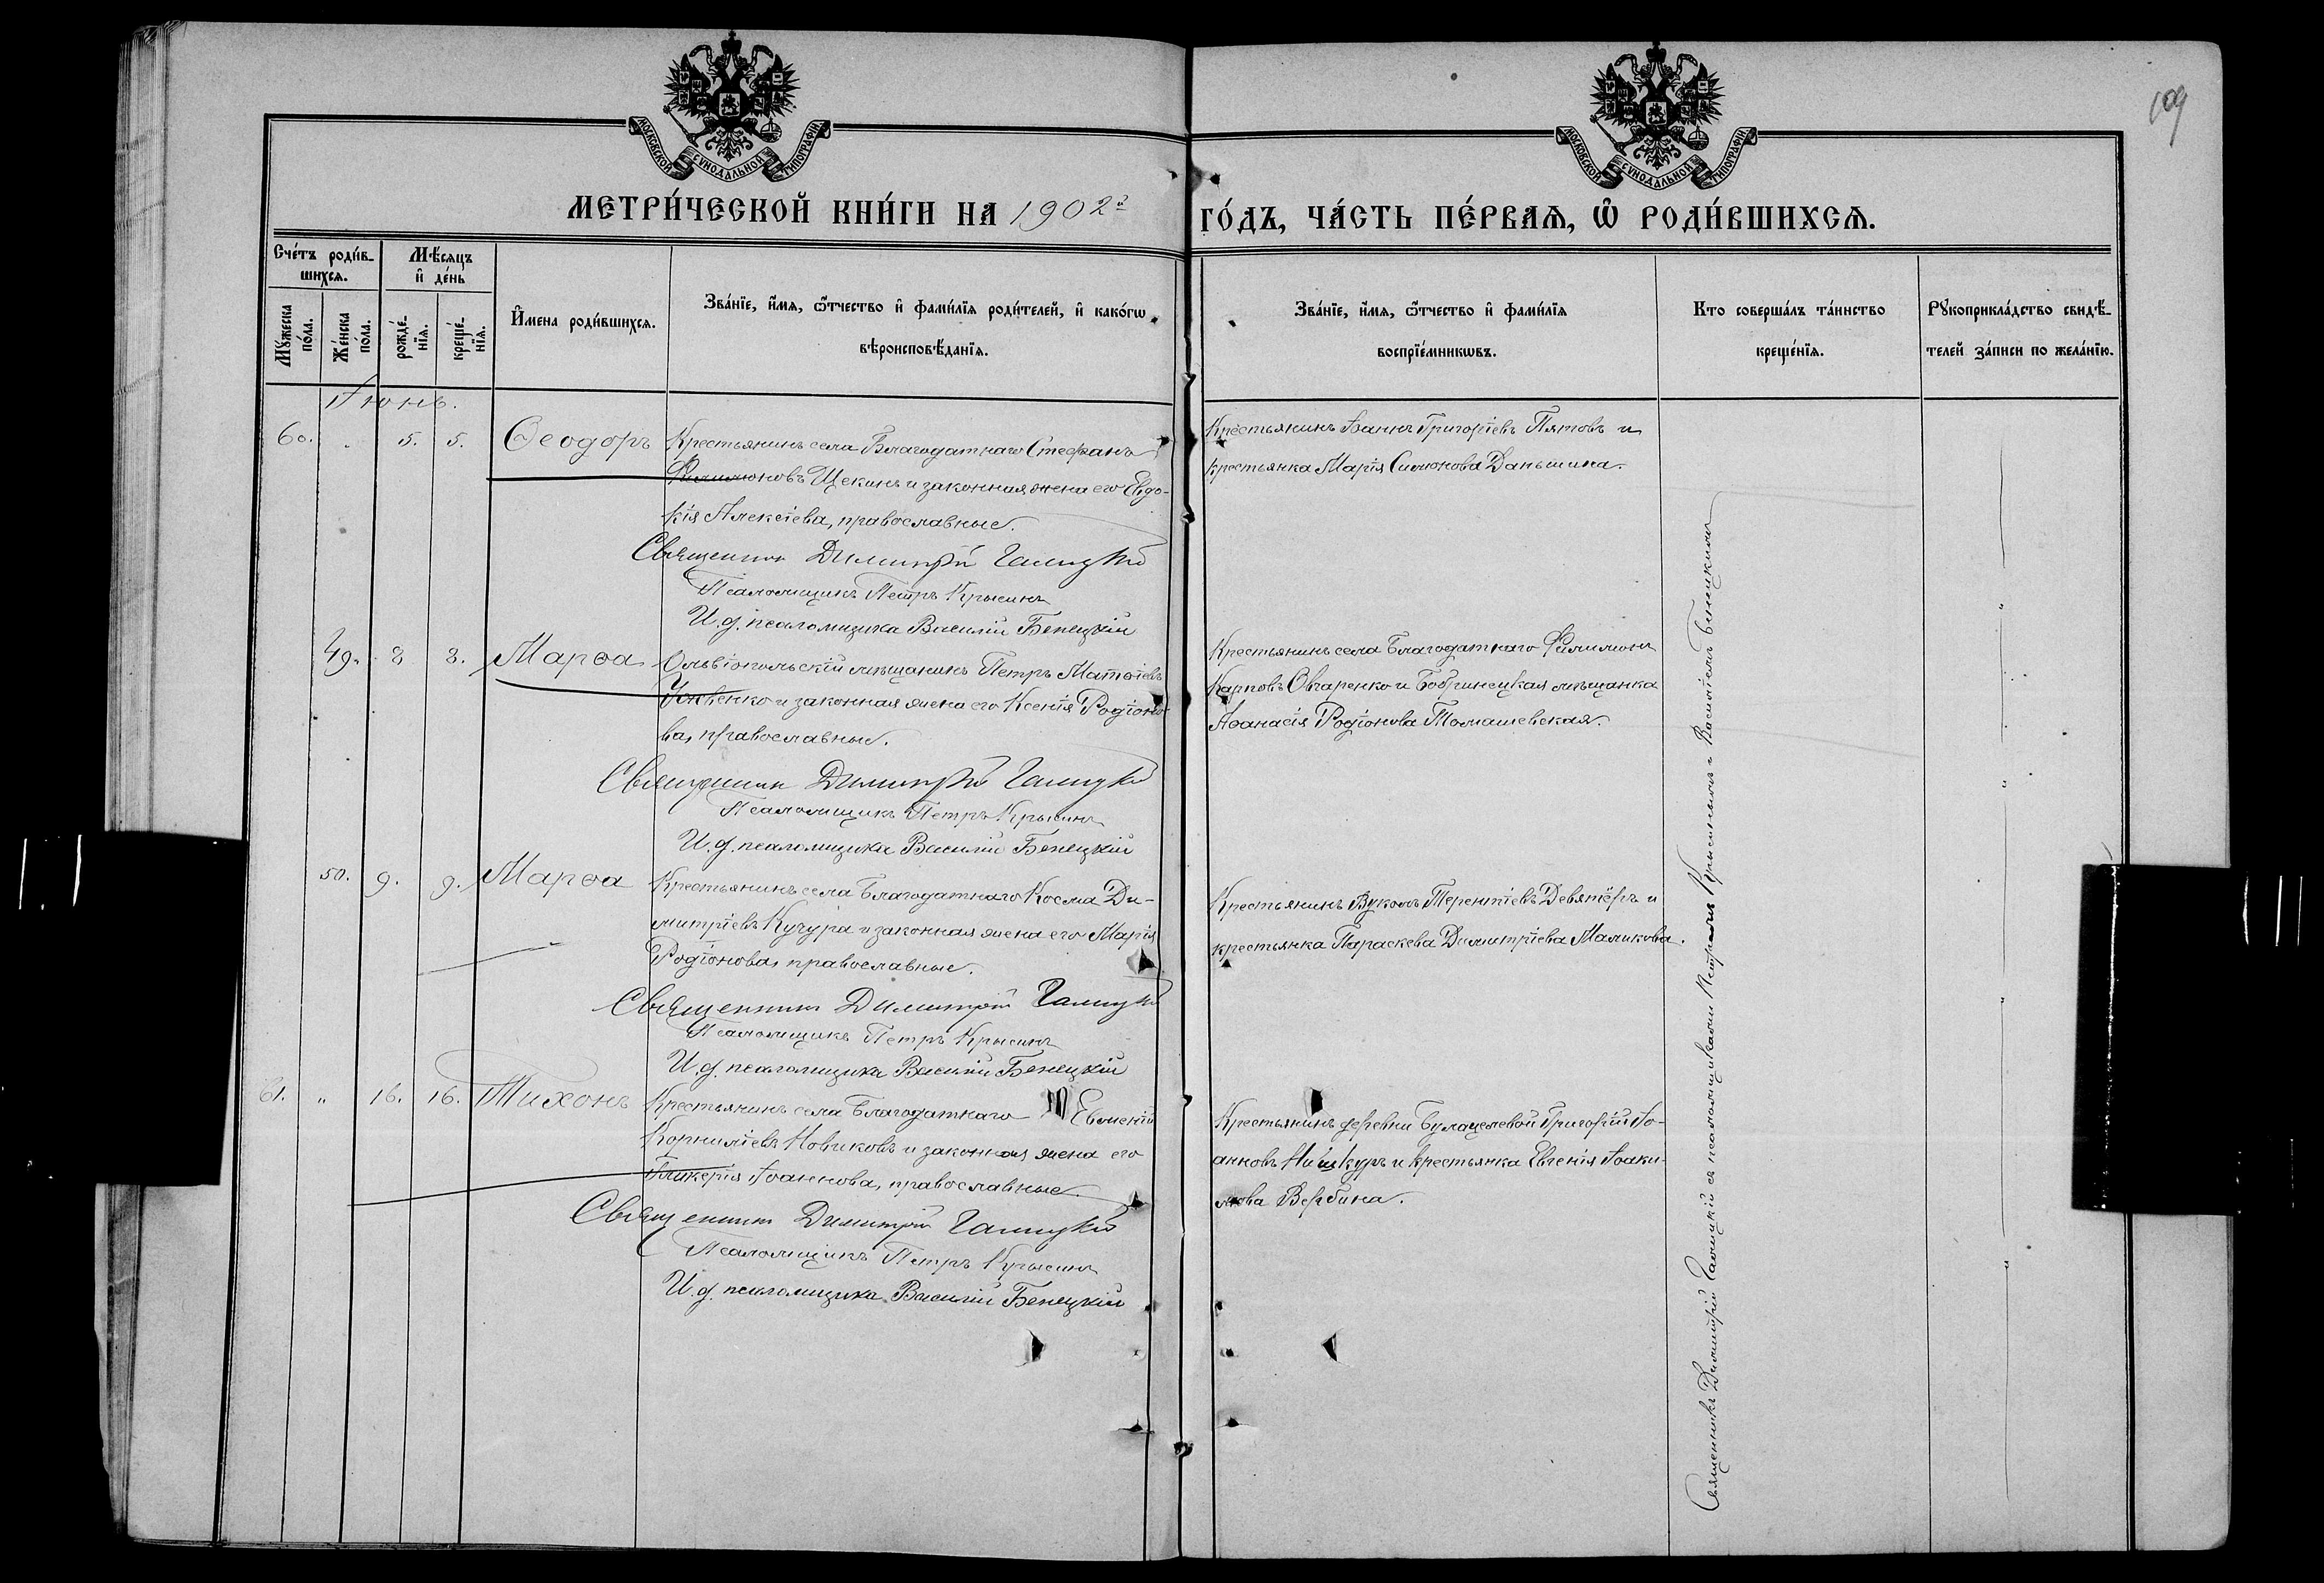 109
МОСКОВСКОЙ СѴНОДАЛЬНОЙ ТИПОГРАФІИ
МОСКОВСКОЙ СѴНОДАЛЬНОЙ ТИПОГРАФІИ
МЕТРИ́ЧЕСКОЙ КНИ́ГИ НА 1902й ГО́ДЪ, ЧА́СТЬ ПЕ́РВАЯ, Ѡ҆ РОДИ́ВШИХСЯ.
Сче́тъ роди́в-
шихся.
Мꙋ́жеска по́ла.
Же́нска по́ла.
Мѣ́сяцъ
и҆ де́нь
рожде́-
нїя.
креще́-
нїя.
И҆мена роди́вшихся.
Зва́нїе, и҆́мя, ѻ҆́тчество и҆ фами́лїя роди́телей, и҆ како́гѡ
вѣроисповѣ́данїя.
Зва́нїе, и҆́мя, ѻ҆́тчество и҆ фами́лїя
воспрїе́мникѡвъ.
Кто соверша́лъ та́инство
креще́нїя.
Рꙋкоприкла́дство свидѣ́-
телей за́писи по жела́нїю.
Іюнь.
60. „ 5. 5. Ѳеодоръ
Крестьянинъ села Благодатнаго Стефанъ
Филимоновъ Щекинъ и законная жена его Евдо-
кія Алексіева, православные.
Священникъ Димитрій Галицкій
Псаломщикъ Петръ Крысинъ
И. д. псаломщика Василій Бенецкій
Крестьянинъ Іоаннъ Григоріевъ Пятовъ и
крестьянка Марія Симонова Даньшина.
49. 8 8. Марѳа
Ольвіопольскій мѣщанинъ Петръ Матѳіевъ
и законная жена его Ксенія Родіоно-
ва, православные.
Священникъ Димитрій Галицкій
Псаломщикъ Петръ Крысинъ
И. д. псаломщика Василій Бенецкій
Крестьянинъ села Благодатнаго Филимонъ
Карповъ Овчаренко и Бобринецкая мѣщанка
Аѳанасія Родіонова Томашевская.
50. 9. 9. Марѳа
Крестьянинъ села Благодатнаго Косма Ди-
митріевъ Кучура и законная жена его Марія
Родіонова, православные.
Священникъ Димитрій Галицкій
Псаломщикъ Петръ Крысинъ
И. д. псаломщика Василій Бенецкій
Крестьянинъ Вуколъ Терентіевъ Девятёръ и
крестьянка Параскева Димитріева Маликова.
61. „ 16. 16. Тихонъ
Крестьянинъ села Благодатнаго Евмений
Корниліевъ Новиковъ и законная жена его
Гликерія Іоаннова, православные.
Священникъ Димитрій Галицкій
Псаломщикъ Петръ Крысинъ
И. д. псаломщика Василій Бенецкій
Крестьянинъ деревни Булацелевой Григорій Іо-
анновъ и крестьянка Евгенія Іоаки-
мова Вербина.
Священникъ Димитрій Галицкій съ псаломщиками Петромъ Крысинымъ и Василіемъ Бенецкимъ